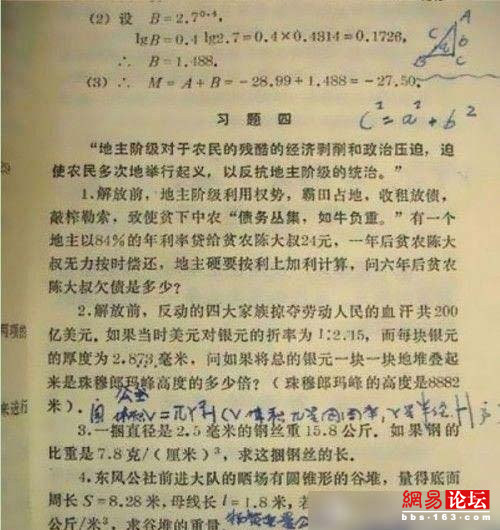 (2) 设 B=2.7⁰·⁴,
lgB=0.4 lg2.7=0.4×0.4314=0.1726,
∴ B=1.488.
(3) ∴ M=A+B=-28.99+1.488=-27.50.
A
B C
习题四
c²=a²+b²
“地主阶级对于农民的残酷的经济剥削和政治压迫，迫
使农民多次地举行起义，以反抗地主阶级的统治。”
1.解放前，地主阶级利用权势，霸田占地，收租放债，
敲榨勒索，致使贫下中农“债务丛集，如牛负重。”有一个
地主以84%的年利率贷给贫农陈大叔24元，一年后贫农陈大
叔无力按时偿还，地主硬要按利上加利计算，问六年后贫农
陈大叔欠债是多少？
2.解放前，反动的四大家族掠夺劳动人民的血汗共200
亿美元．如果当时美元对银元的折率为1:2.15，而每块银元
的厚度为2.873毫米，问如果将总的银元一块一块地堆叠起
来是珠穆郎玛峰高度的多少倍？（珠穆郎玛峰的高度是8882
米）．
3.一捆直径是2.5毫米的钢丝重15.8公斤．如果钢的
比重是7.8克/（厘米）³，求这捆钢丝的长．
4.东风公社前进大队的晒场有圆锥形的谷堆，量得底面
周长S=8.28米，母线长l=1.8米，
公斤/米³，求谷堆的重量
两项的
来运行
網易论坛
bbs.163.com